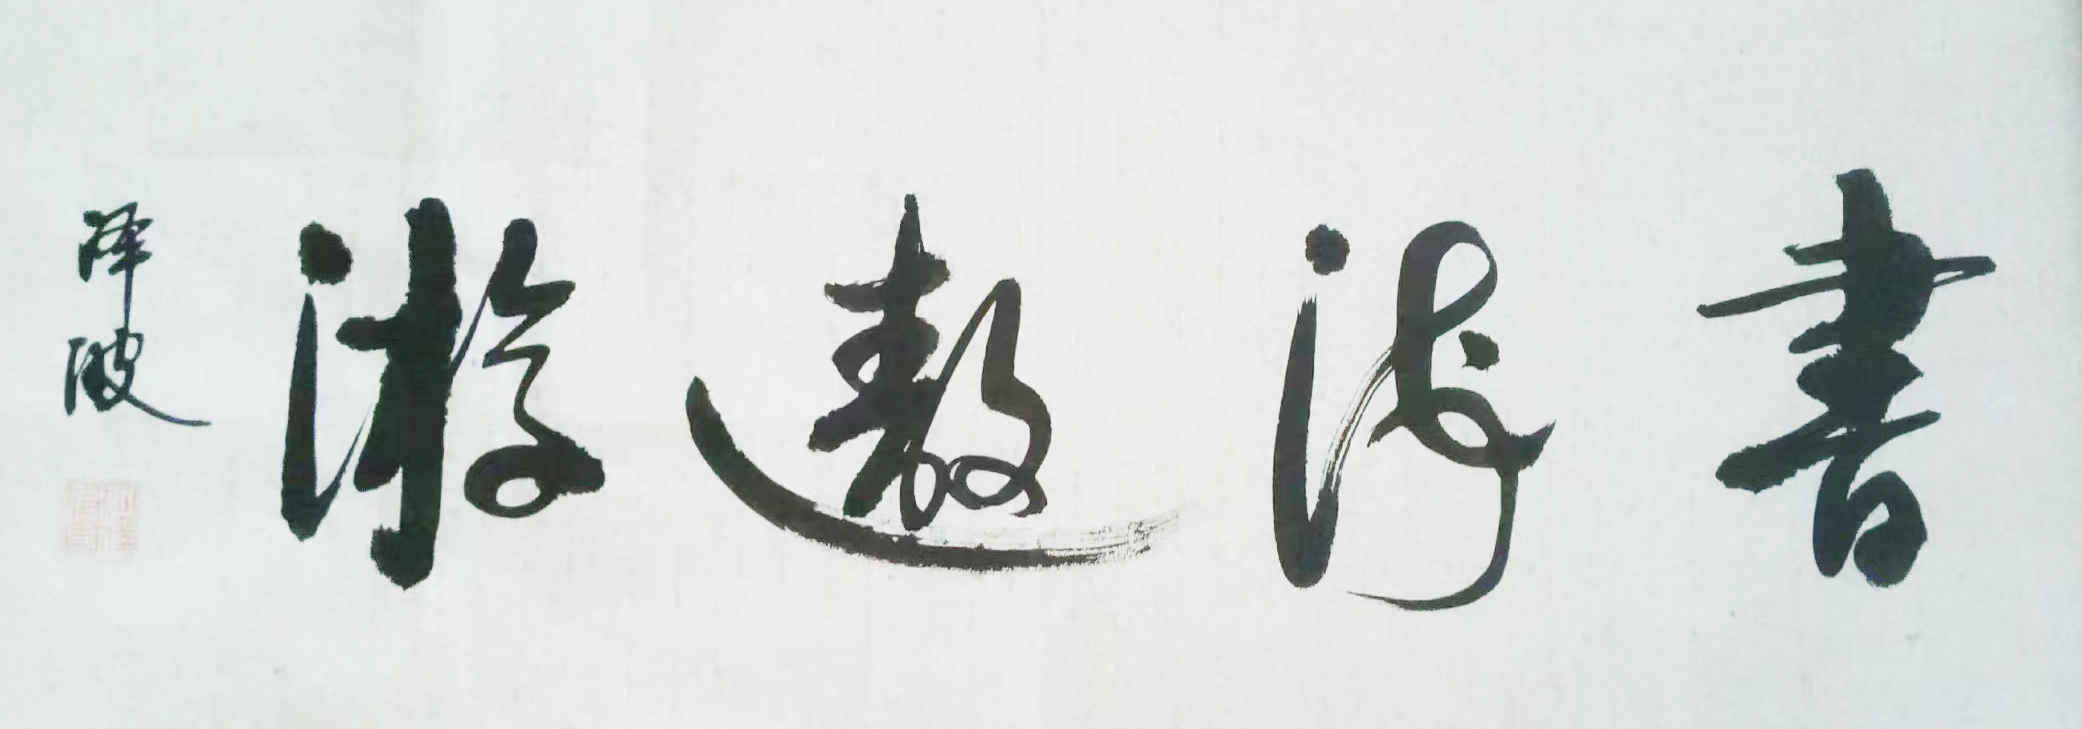 書海遨游
泽波